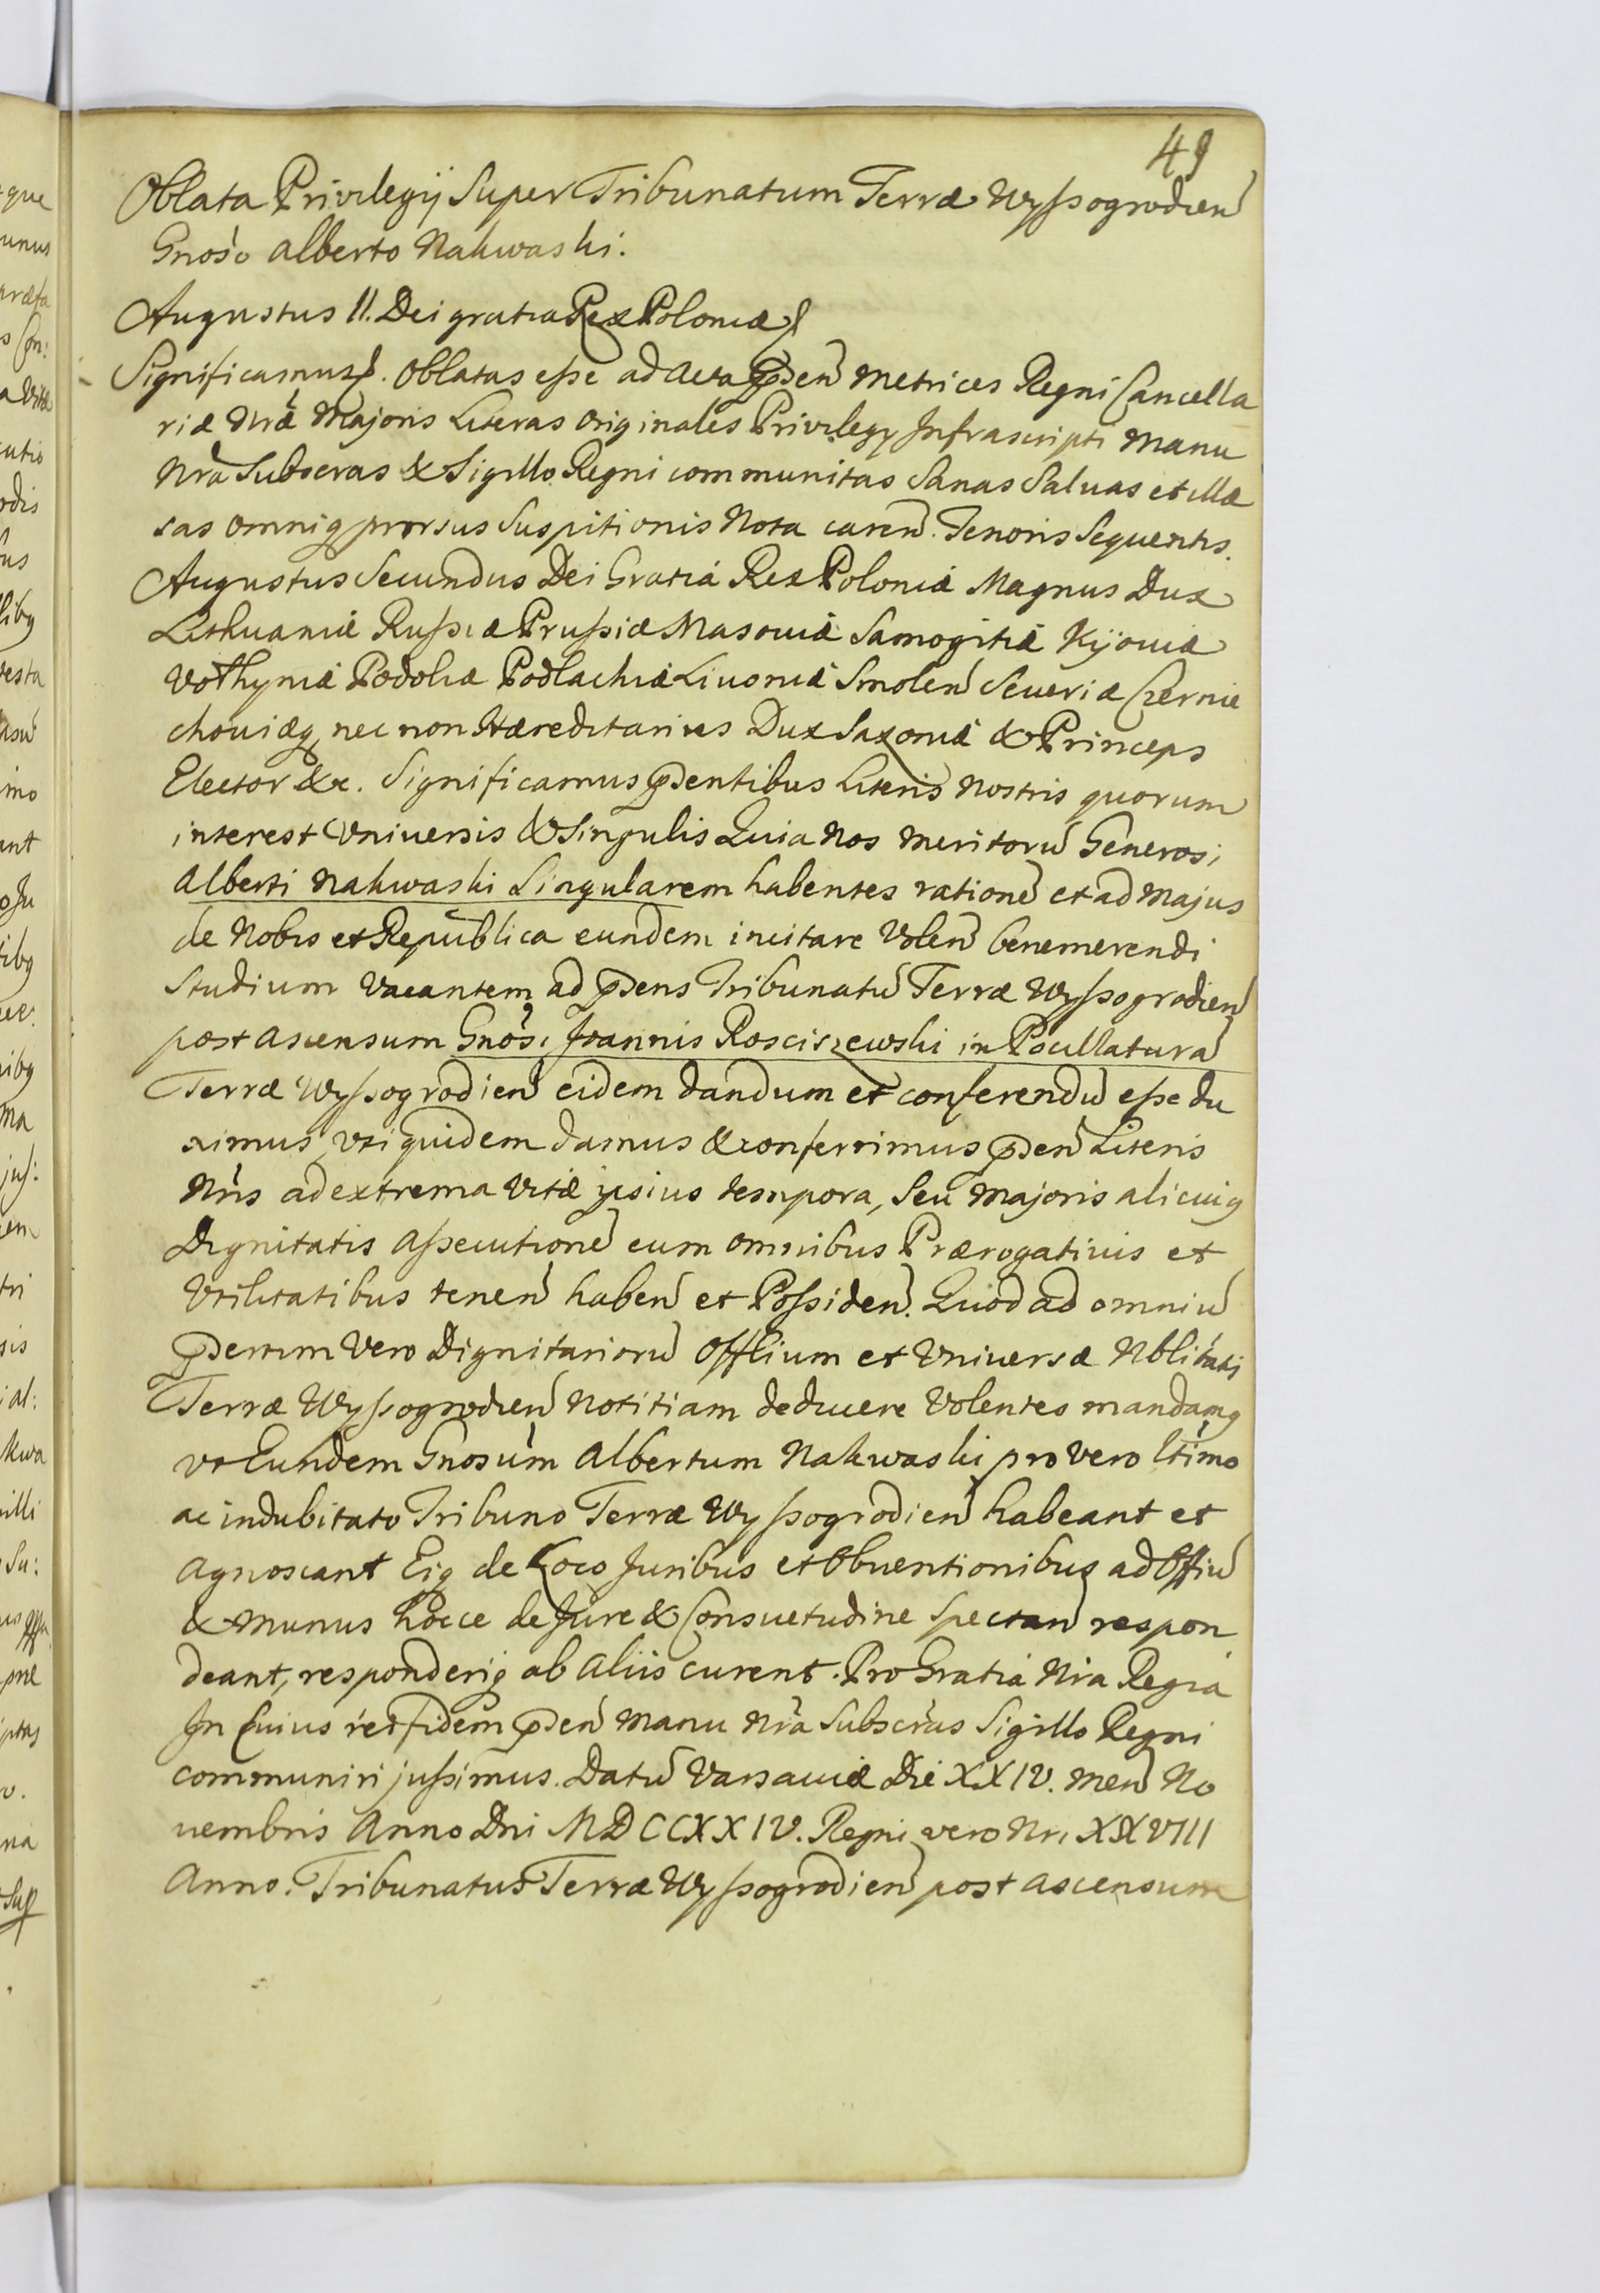 49
Oblata Privilegij Super Tribunatum Terræ Wyssogrodien
Gnoso Alberto Nakwaski.
Augustus II. Dei gratia Rex Poloniæ
Significamus. Oblatas esse ad Acta pnden Metrices Regni Cancella
riæ Nræ Majoris Literas Originales Privilegy Infrascripti Manu
Nra Subscras & Sigillo Regni communitas Sanas Saluas et illæ
sas omniq prorsus Suspitionis Nota caren. Tenoris Sequentis.
Augustus Secundus Dei Gratia Rex Poloniæ Magnus Dux
Lithuaniæ Russiæ Prussiæ Masouiæ Samogitiæ Kijouiæ
Volhyniæ Podoliæ Podlachiæ Liuoniæ Smolen Seueriæ Czernie
chouiæq nec non Hæreditarius Dux Saxoniæ & Princeps
Elector &c. Significamus pntibus Literis Nostris quorum
interest Vniuersis & Singulis Quia Nos Meritoru Generosi
Alberti Nakwaski Singularem habentes ratione et ad Majus
de Nobis et Republica eundem incitare Volen benemerendi
Studium Vacantem ad pndens Tribunatu Terræ Wyssogrodien
post Ascensum Gnosi Joannis Rosciszewski in Pocillatura
Terræ Wyssogrodien eidem dandum et conferendu esse du
ximus vti quidem damus & conferrimus pnden Literis
Nris ad extrema Vitæ ipsius tempora, Seu Majoris alicuiq
Dignitatis Assecutione cum omnibus Prærogatiuis et
Vtilitatibus tenen haben et Possiden. Quod ad omniu
Vero Dignitarioru Offlium et Vniuersæ Nblitatis
Terræ Wyssogrodien Notitiam deducere Volentes mandamq
vt Eundem Gnosum Albertum Nakwaski pro Vero ltimo
ac indubitato Tribuno Terræ Wyssogrodien habeant et
Agnoscant Eiq de Loco Juribus et Obuentionibus ad Offiu
& Munus hocce de Jure & Consuetudine Spectan respon
deant, responderiq ab Aliis curent. Pro Gratia Nra Regia
In Cuius rei fidem pnden Manu Nra Subscras Sigillo Regni
communiri jussimus. Datu Varsauiæ Die XXIV. Men No
uembris Anno Dni MDCCXXIV. Regni vero Nri XXVIII
Anno. Tribunatus Terræ Wyssogrodien post Ascensum